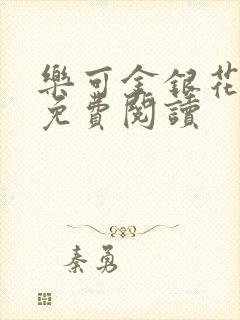 樂可金銀花
免費閱讀
秦勇